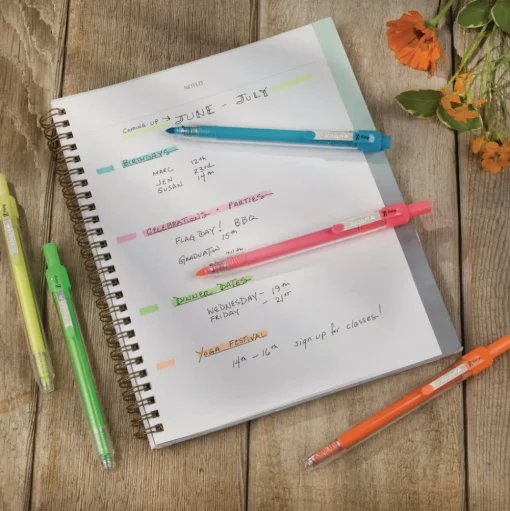 NOTES
COMING UP → JUNE - JULY
BIRTHDAYS
MARC 12th
JEN 23rd
SUSAN 14th
CELEBRATIONS - PARTIES
FLAG DAY! BBQ
15th
GRADUATION
DINNER DATES
WEDNESDAY - 19th
FRIDAY - 21st
YOGA FESTIVAL
14th - 16th sign up for classes!